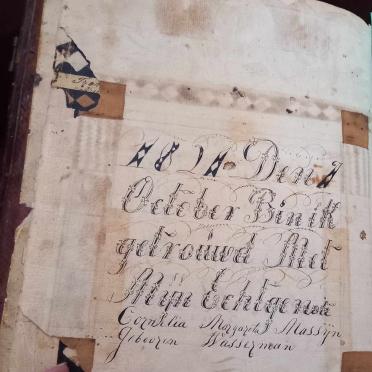 1821 Den 7
October Bin ik
getrouwd Met
Mijn Echtgenoot
Cornelia Margareta Massijn
Gebooren Wasserman